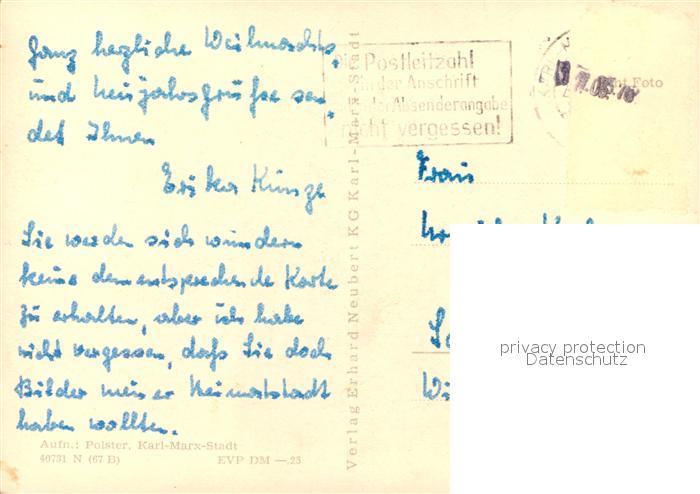 Ganz herzliche Weihnachts-
und Neujahrsgrüße sen-
det Ihnen
Erika Kunze
Sie werden sich wundern
keine dementsprechende Karte
zu erhalten, aber ich habe
nicht vergessen, daß Sie doch
Bilder meiner Heimatstadt
haben wollten.
Aufn.: Polster, Karl-Marx-Stadt
40731 N (67 B) EVP DM —.25
Verlag Erhard Neubert KG Karl-Marx-Stadt
Die Postleitzahl
in der Anschrift
der Absenderangabe
nicht vergessen!
Foto
Frau
privacy protection
Datenschutz